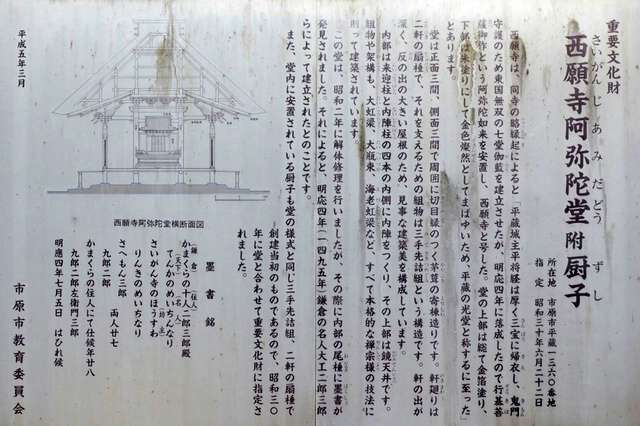 重要文化財
さいがんじあみだどう　ずし
西願寺阿弥陀堂 附 厨子
所在地　市原市平蔵一三六〇番地
指定　昭和三十年六月二十二日
西願寺は、同寺の略縁起によると「平蔵城主平将経は厚く三宝に帰衣し、鬼門
守護のため東国無双の七堂伽藍を建立させたが、明応四年に落成したので行基菩
薩御作という阿弥陀如来を安置し、西願寺と号した。堂の上部は総て金箔塗り、
下部は朱塗りにして金色燦然としてまばゆいため、平蔵の光堂と称するに至った」
とあります。
堂は正面三間、側面三間で周囲に切目縁のつく茅葺の寄棟造りです。軒廻りは
二軒の扇棰で、それを支えるための組物は三手先詰組という構造です。軒の出が
深く、反の出の大きい屋根のため、見事な建築美を構成しています。
内部は来迎柱と内陣柱の四本の内側に内陣をつくり、その上部は鏡天井です。
組物や架構も、大虹梁、大瓶束、海老虹梁など、すべて本格的な禅宗様の技法に
則って建築されています。
この堂は、昭和二年に解体修理を行いましたが、その際に内部の尾棰に墨書が
発見されました。それによると、明応四年(一四九五年)鎌倉の名人大工二郎三郎
らによって建立されたとのことです。
また、堂内に安置されている厨子も堂の様式と同じ三手先詰組、二軒の扇棰で
創建当初のものであるので、昭和三〇
年に堂と合わせて重要文化財に指定さ
れました。
墨書銘
(鎌倉)(住人)
かまくらの十人二郎三郎殿
(天下)(名人)
てんかのめいちんなり
(坊主)
さいがん寺のほうすわ
りんきのめいちなり
さへもん三郎
九郎二郎　両人廿七
かまくらの住人にて仕候年廿八
九郎二郎左衛門三郎
明應四年七月五日　はひれ候
西願寺阿弥陀堂横断面図
平成五年三月
市原市教育委員会